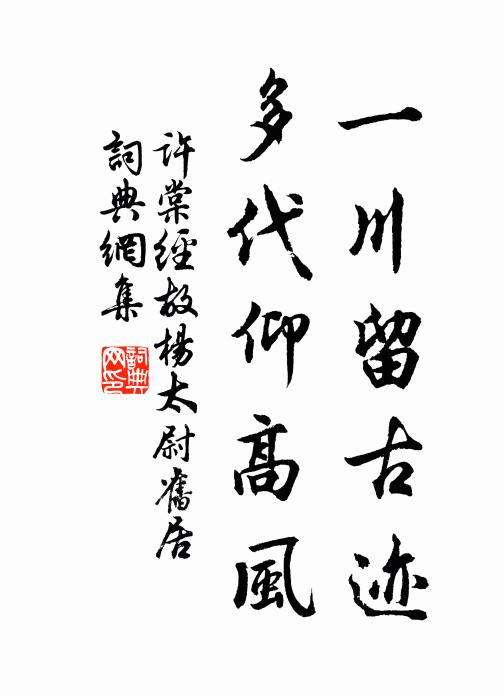 一川留古迹
多代仰高風
許棠經故楊太尉舊居
詞典網集
詞典網印